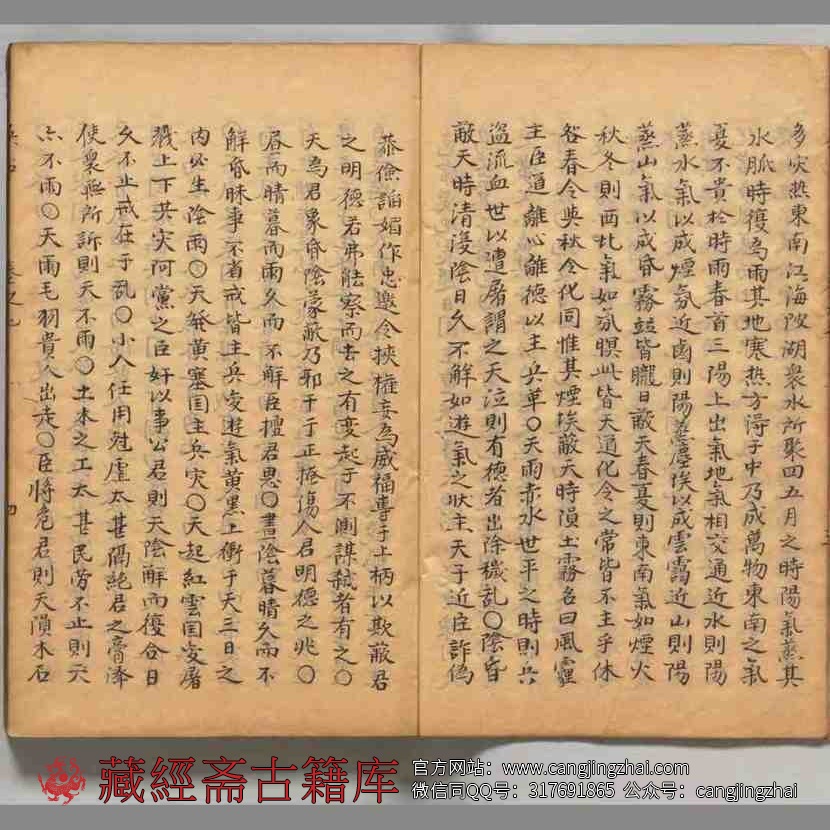 多災热東南江海陂湖衆水所聚四五月之時陽氣蒸其
水脈時復為雨其地寒热方得于中乃成萬物東南之氣
憂不貴於時雨春首三陽上出氣地氣相交通近水則陽
蒸水氣以成煙氛近鹵則陽蒸塵埃以成雲靄近山則陽
蒸山氣以成昏霧鼓皆朧日蔽天春夏則東南氣如煙火
秋冬則西北氣如氛暝此皆天通化令之常皆不主乎休
咎春令與秋令化同惟其煙埃蔽天時隕土霧名曰風霾
主臣道離心離德以主兵革〇天雨赤水世平之時則兵
盗流血世以遭屠謂之天泣則有德者出除穢乱〇陰昏
蔽天時清復陰日久不解如遊氣之狀主天子近臣詐偽
恭儉諂媚作忠邀令挾權妄為威福專于上柄以欺蔽君
之明德若弗能察而去之有变起于不測謀弑者有之〇
天為君象昏陰蒙蔽乃邪干于正掩傷人君明德之兆〇
昏而晴暮而雨久而不解臣擅君恩〇晝陰暮晴久而不
解昏昧事不省戒皆主兵变遊氣黄黑上衝于天三日之
内必生陰雨〇天發黄塞国主兵灾〇天起紅雲国变屠
戮上下共灾阿黨之臣奸以事公君則天陰解而復合日
久不止戒在于乱〇小人任用尅虐太甚隔絕君之膏澤
使衆無所訴則天不雨〇土木之工太甚民劳不止則天
亦不雨〇天雨毛羽貴人出走〇臣將危君則天隕木石
四
藏經斋古籍库
官方网站：www.cangjingzhai.com
微信同QQ号：317691865 公众号：cangjingzhai